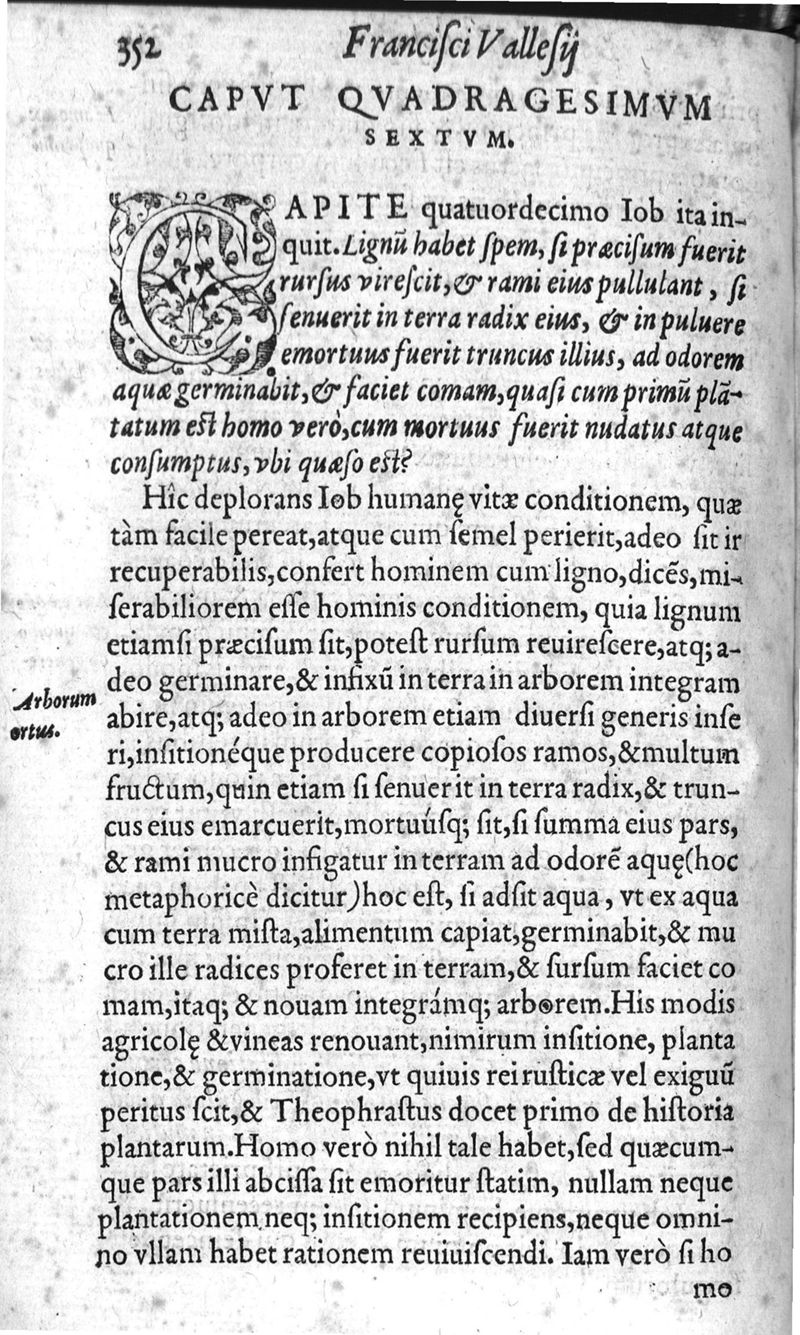 352 Franciſci Valleſij
CAPVT QVADRAGESIMVM
SEXTVM.
CAPITE quatuordecimo Iob ita in-
quit. Lignū habet ſpem, ſi præciſum fuerit
rurſus vireſcit, & rami eius pullulant, ſi
ſenuerit in terra radix eius, & in puluere
emortuus fuerit truncus illius, ad odorem
aquæ germinabit, & faciet comam, quaſi cum primū plā-
tatum eſt homo verò, cum mortuus fuerit nudatus atque
conſumptus, vbi quæſo eſt?
Hîc deplorans Iob humanę vitæ conditionem, quæ
tàm facile pereat, atque cum ſemel perierit, adeo ſit ir
recuperabilis, confert hominem cum ligno, dicēs, mi-
ſerabiliorem eſſe hominis conditionem, quia lignum
etiamſi præciſum ſit, poteſt rurſum reuireſcere, atq; a-
deo germinare, & infixū in terra in arborem integram
Arborum
ortus.
abire, atq; adeo in arborem etiam diuerſi generis inſe
ri, inſitionéque producere copioſos ramos, & multum
fructum, quin etiam ſi ſenuerit in terra radix, & trun-
cus eius emarcuerit, mortuúſq; ſit, ſi ſumma eius pars,
& rami mucro infigatur in terram ad odorē aquę (hoc
metaphoricè dicitur) hoc eſt, ſi adſit aqua, vt ex aqua
cum terra miſta, alimentum capiat, germinabit, & mu
cro ille radices proferet in terram, & ſurſum faciet co
mam, itaq; & nouam integrámq; arborem. His modis
agricolę & vineas renouant, nimirum inſitione, planta
tione, & germinatione, vt quiuis rei ruſticæ vel exiguū
peritus ſcit, & Theophraſtus docet primo de hiſtoria
plantarum. Homo verò nihil tale habet, ſed quæcum-
que pars illi abciſſa ſit emoritur ſtatim, nullam neque
plantationem neq; inſitionem recipiens, neque omni-
no vllam habet rationem reuiuiſcendi. Iam verò ſi ho
mo